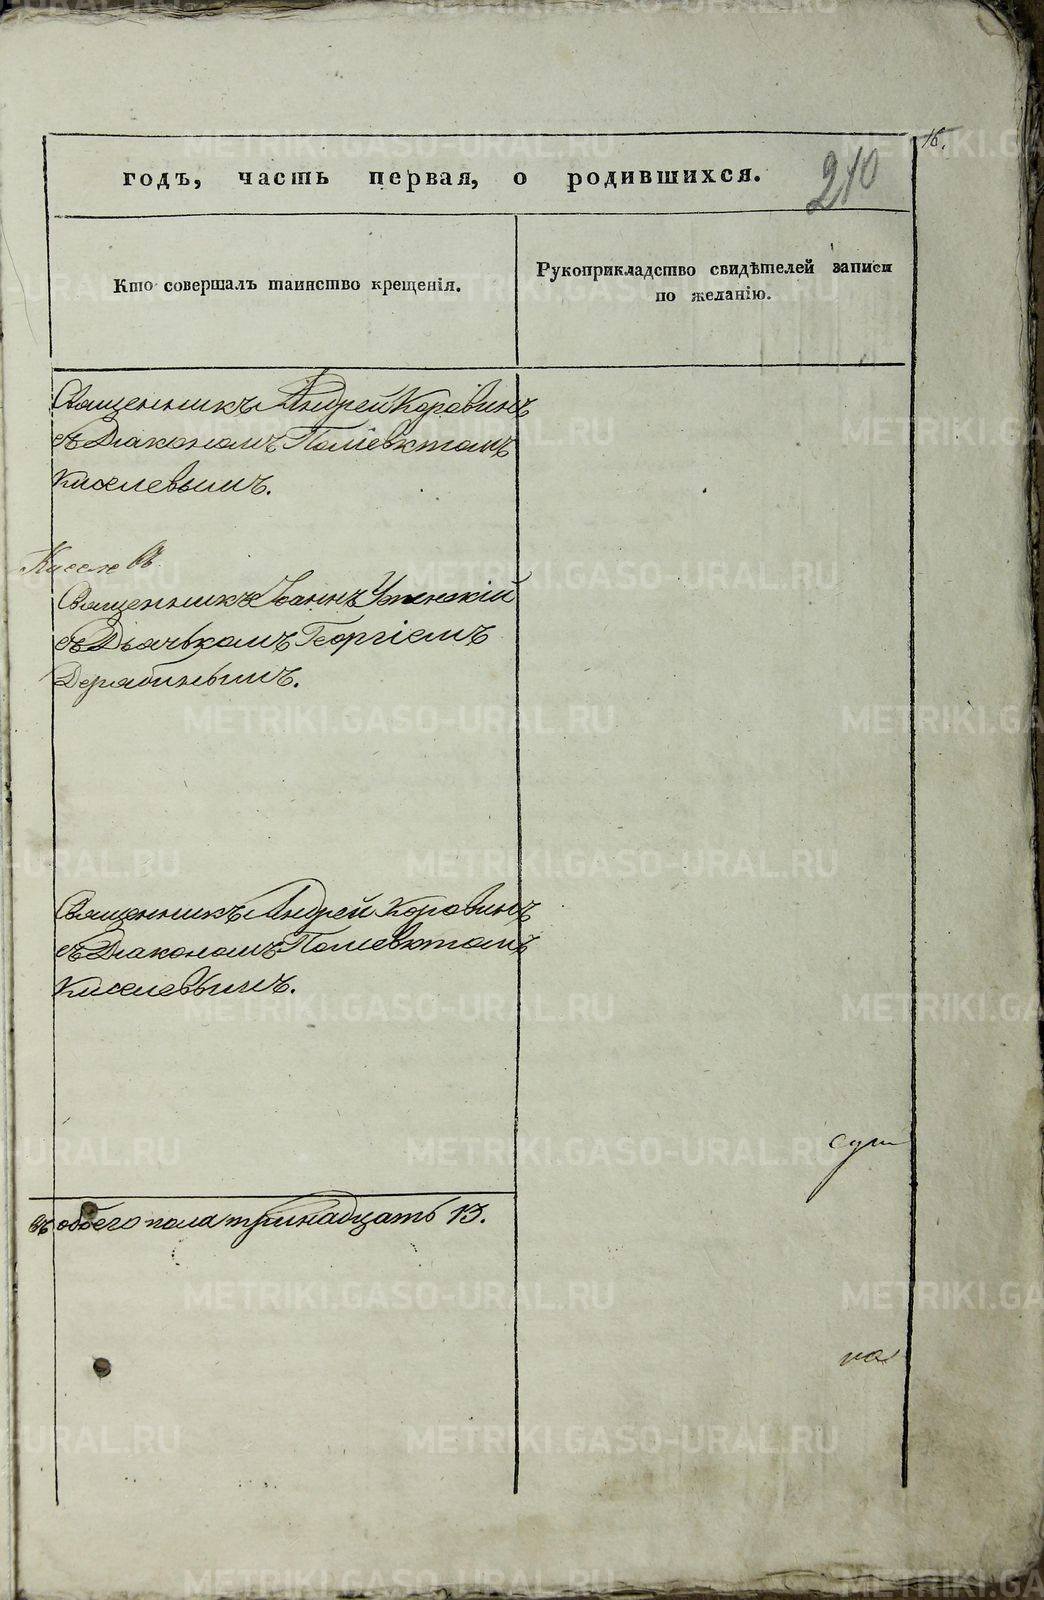 16.
годъ, часть первая, о родившихся.
210
Кто совершалъ таинство крещенія.
Рукоприкладство свидѣтелей записи
по желанію.
Священникъ Андрей Коровинъ
съ Діакономъ Поліевктомъ
Киселевымъ.
Киселевъ
Священникъ Іоаннъ Успенскій
съ Дьячькомъ Георгіемъ
Дерябинымъ.
Священникъ Андрей Коровинъ
съ Діакономъ Поліевктомъ
Киселевымъ.
обоего пола тринадцать 13.
METRIKI.GASO-URAL.RU